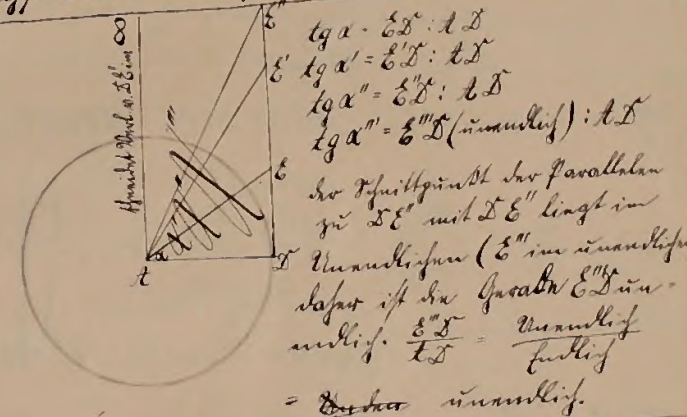 schneidet Verl. v. DE' im ∞
E''
E'
E
D
A
α
α'
α''
α'''
tg α = ED : AD
tg α' = E'D : AD
tg α'' = E''D : AD
tg α''' = E'''D (unendlich) : AD
der Schnittpunkt der Parallelen
zu DE'' mit DE'' liegt im
Unendlichen (E''' im unendlichen
daher ist die Gerade E'''D un-
endlich. E'''D / AD = Unendlich / Endlich
= unendlich.